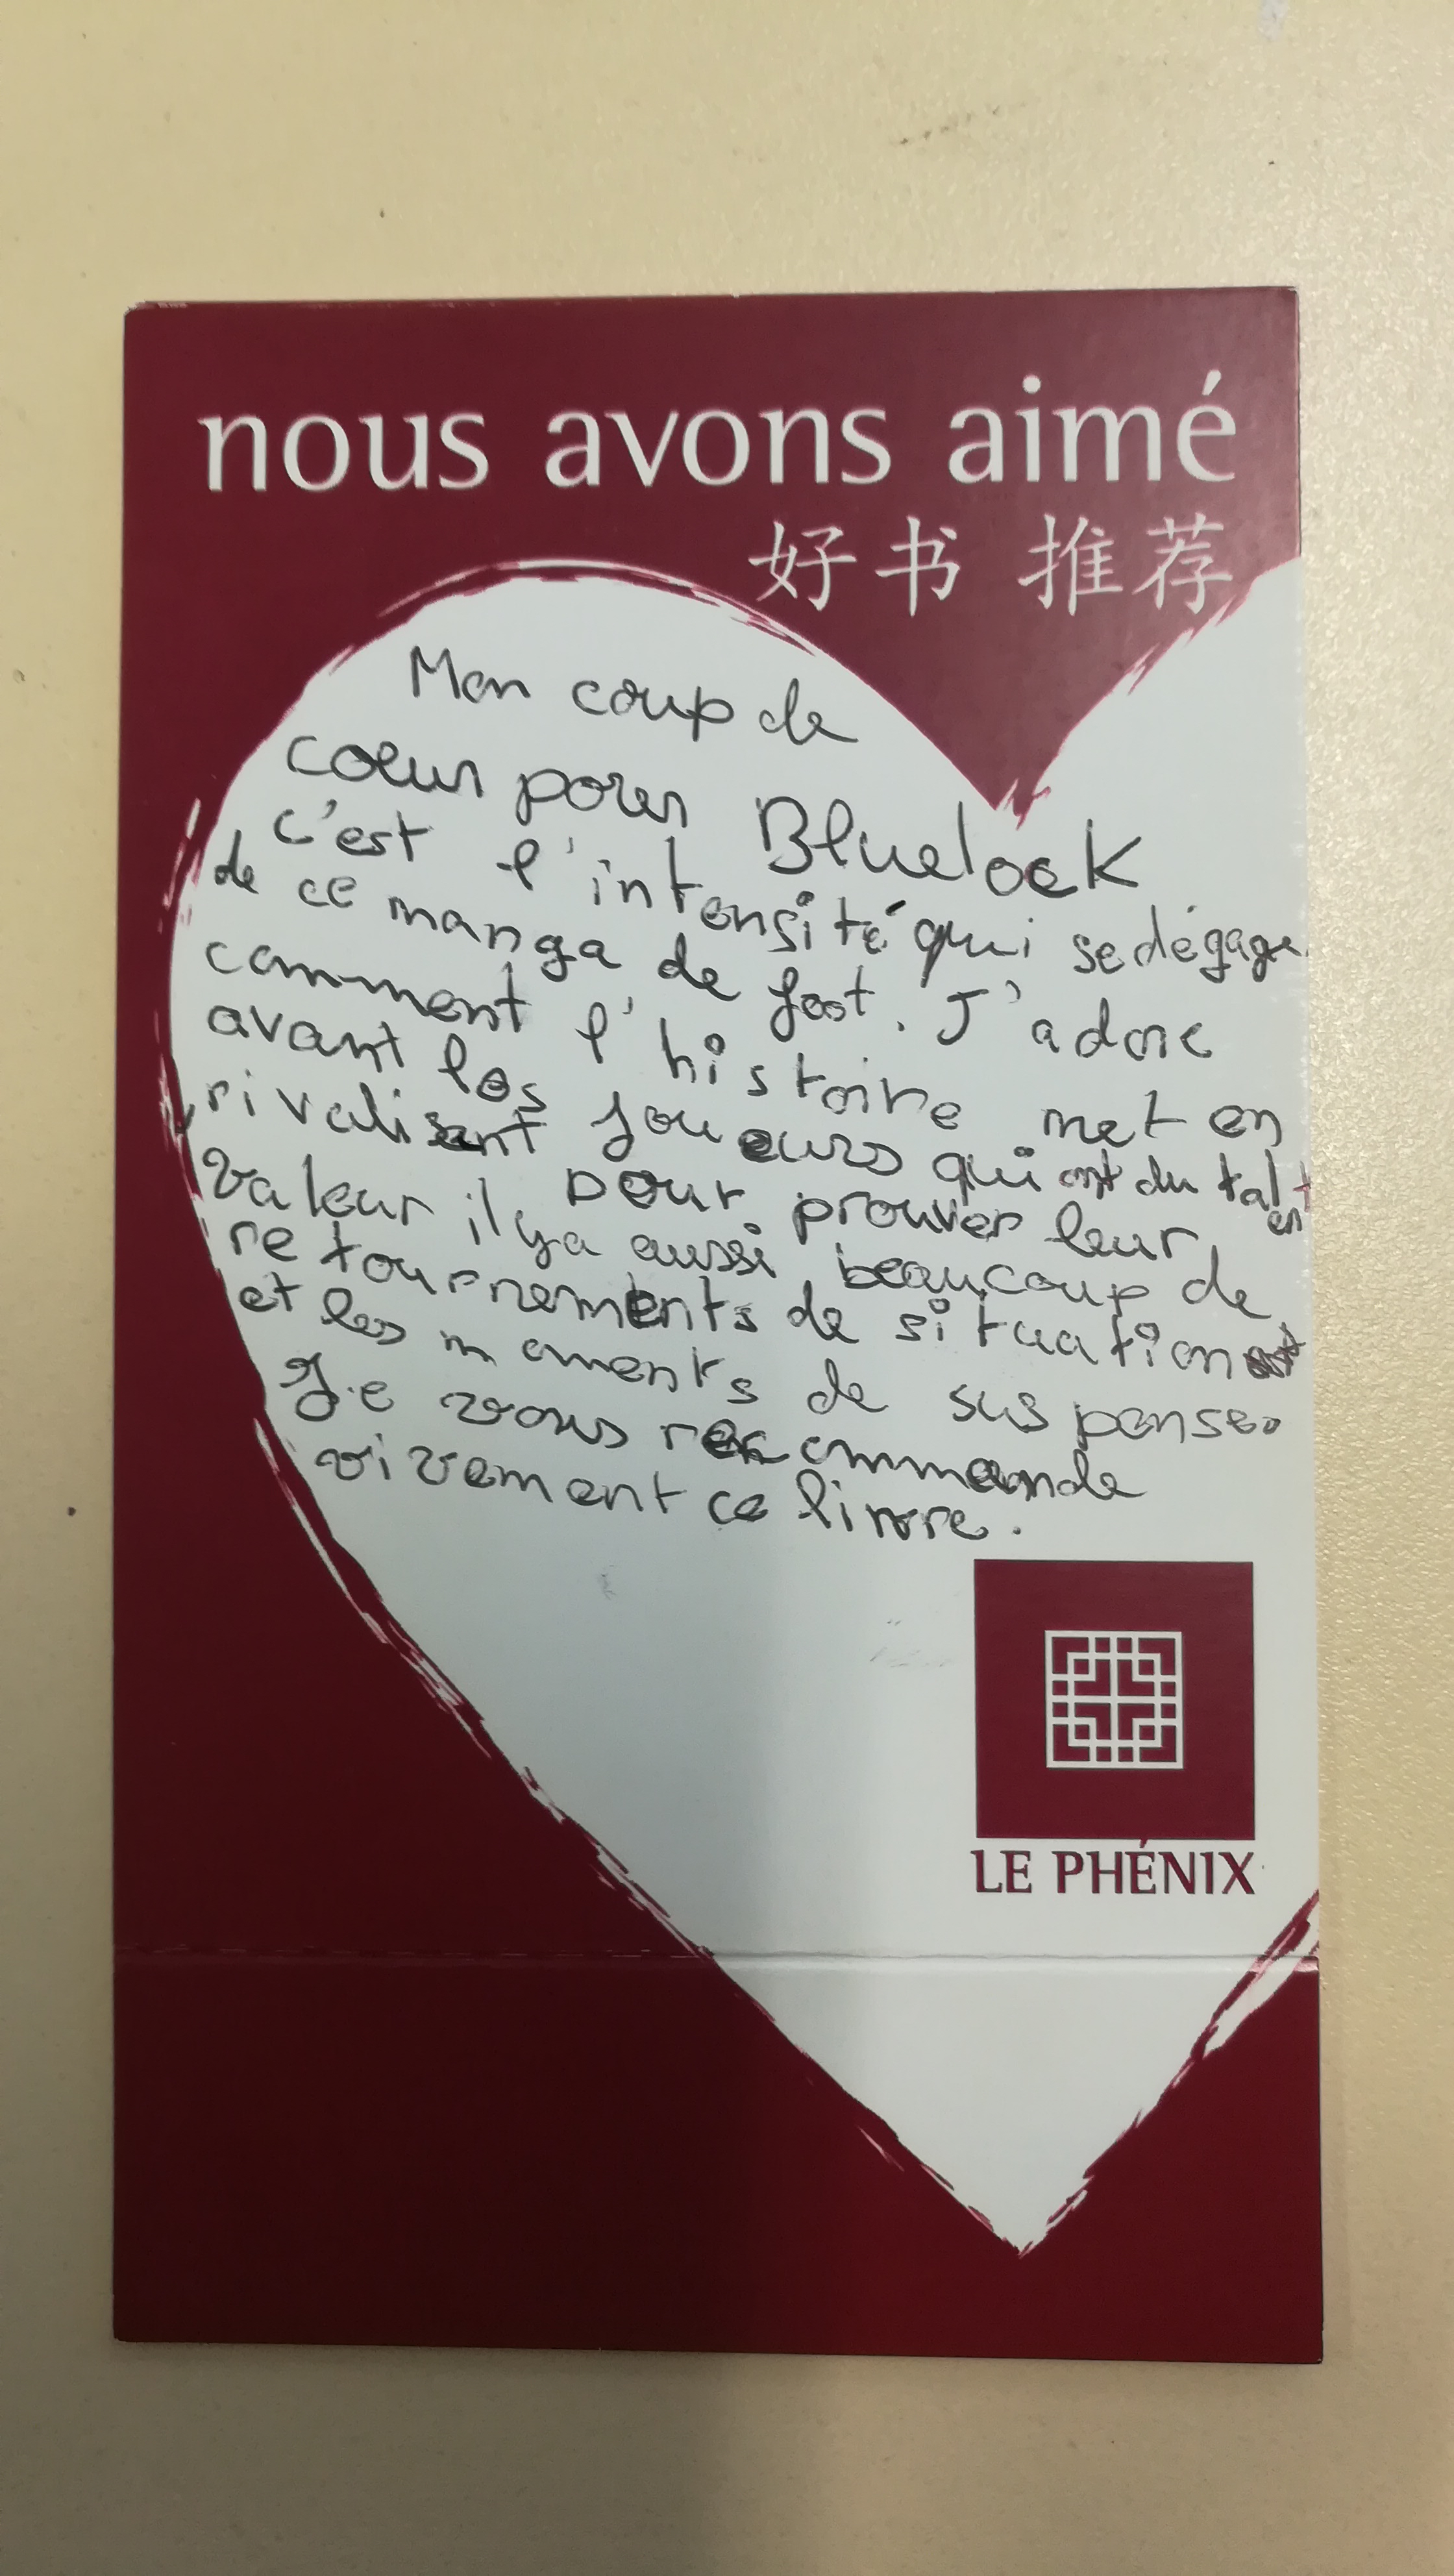 nous avons aimé
好书 推荐
Mon coup de
coeur pour Bluelock
c'est l'intensité qui se dégage
de ce manga de foot. J'adore
comment l'histoire met en
avant les joueurs qui ont du talent
rivalisent pour prouver leur
valeur il ya aussi beaucoup de
retournements de situation
et les moments de suspense.
Je vous recommande
vivement ce livre.
LE PHÉNIX